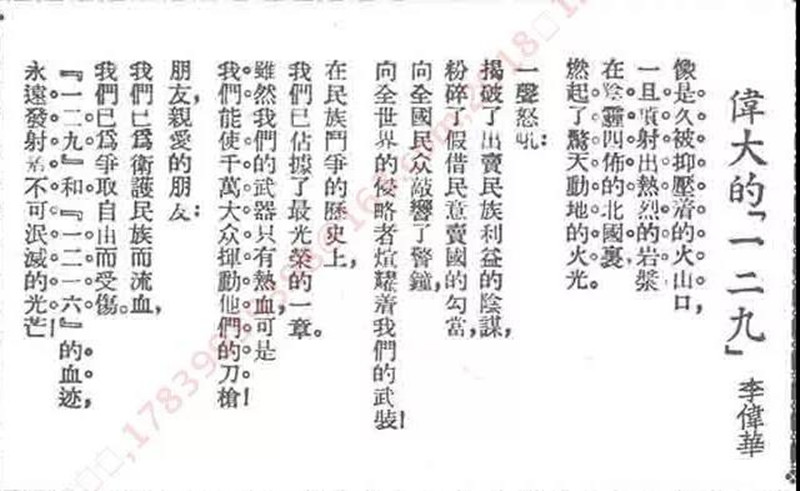 偉大的「一二九」
李偉華
像是久被抑壓着的火山口，
一旦噴射出熱烈的岩漿
在陰霾四佈的北國裏，
燃起了驚天動地的火光。
一聲怒吼：
揭破了出賣民族利益的陰謀，
粉碎了假借民意賣國的勾當，
向全國民众敲響了警鐘，
向全世界的侵略者煊耀着我們的武裝！
在民族鬥爭的歷史上，
我們已佔據了最光榮的一章。
雖然我們的武器只有熱血，可是
我們能使千萬大众揮動他們的刀槍！
朋友，親愛的朋友：
我們已爲衛護民族而流血，
我們已爲爭取自由而受傷。
『一二九』和『一二一六』的血迹，
永遠發射着不可泯滅的光芒！